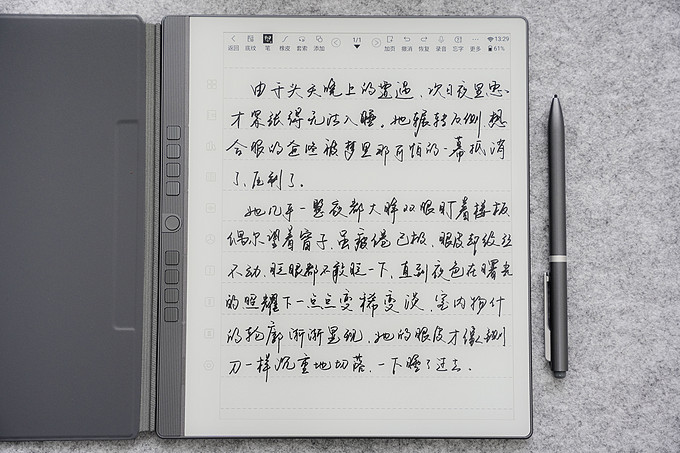 1/1
13:29
返回 底纹 笔 橡皮 套索 添加 加页 撤消 恢复 录音 忘字 更多 61%
由于头天晚上的遭遇，次日夜里思
才紧张得无法入睡。她辗转反侧，想
合眼的念头被梦里那可怕的一幕抵消
了、压制了。
她几乎一整夜都大睁双眼盯着楼板
偶尔望着窗子，虽疲倦已极，眼皮却纹丝
不动，眨眼都不敢眨一下，直到夜色在曙光
的照耀下一点点变稀变淡，室内物什
的轮廓渐渐显现，她的眼皮才像铡
刀一样沉重地切落，一下睡了过去。